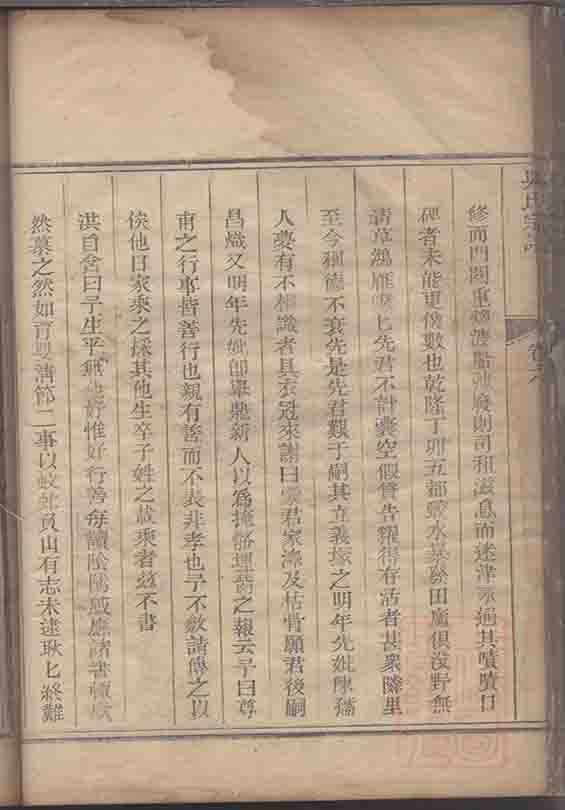 氏宗譜 卷六
修而門閭重 則司租滋息而迷津永通其嘖嘖口
碑者未能更僕數也乾隆丁卯五都 水 田廬俱沒野無
清草鴻雁嗷匕先君不計囊空假貸告糴得存活者甚衆隣里
至今種德不衰先是先君艱于嗣其立義塚之明年先妣陳孺
人夢有不相識者具衣冠來謝曰蒙君家澤及枯骨願君後嗣
昌熾又明年先妣卽舉鼎新人以爲掩骼埋胔之報云予曰尊
甫之行事皆善行也親有善而不表非孝也予不敏請傳之以
俟他日家乘之採其他生卒子姓之載乘者玆不書
洪自舍曰予生平無他好惟好行善每讀陰隲感應諸書輒欣
然慕之然如育嬰清節二事以蚊 負山有志未逮耿匕終難